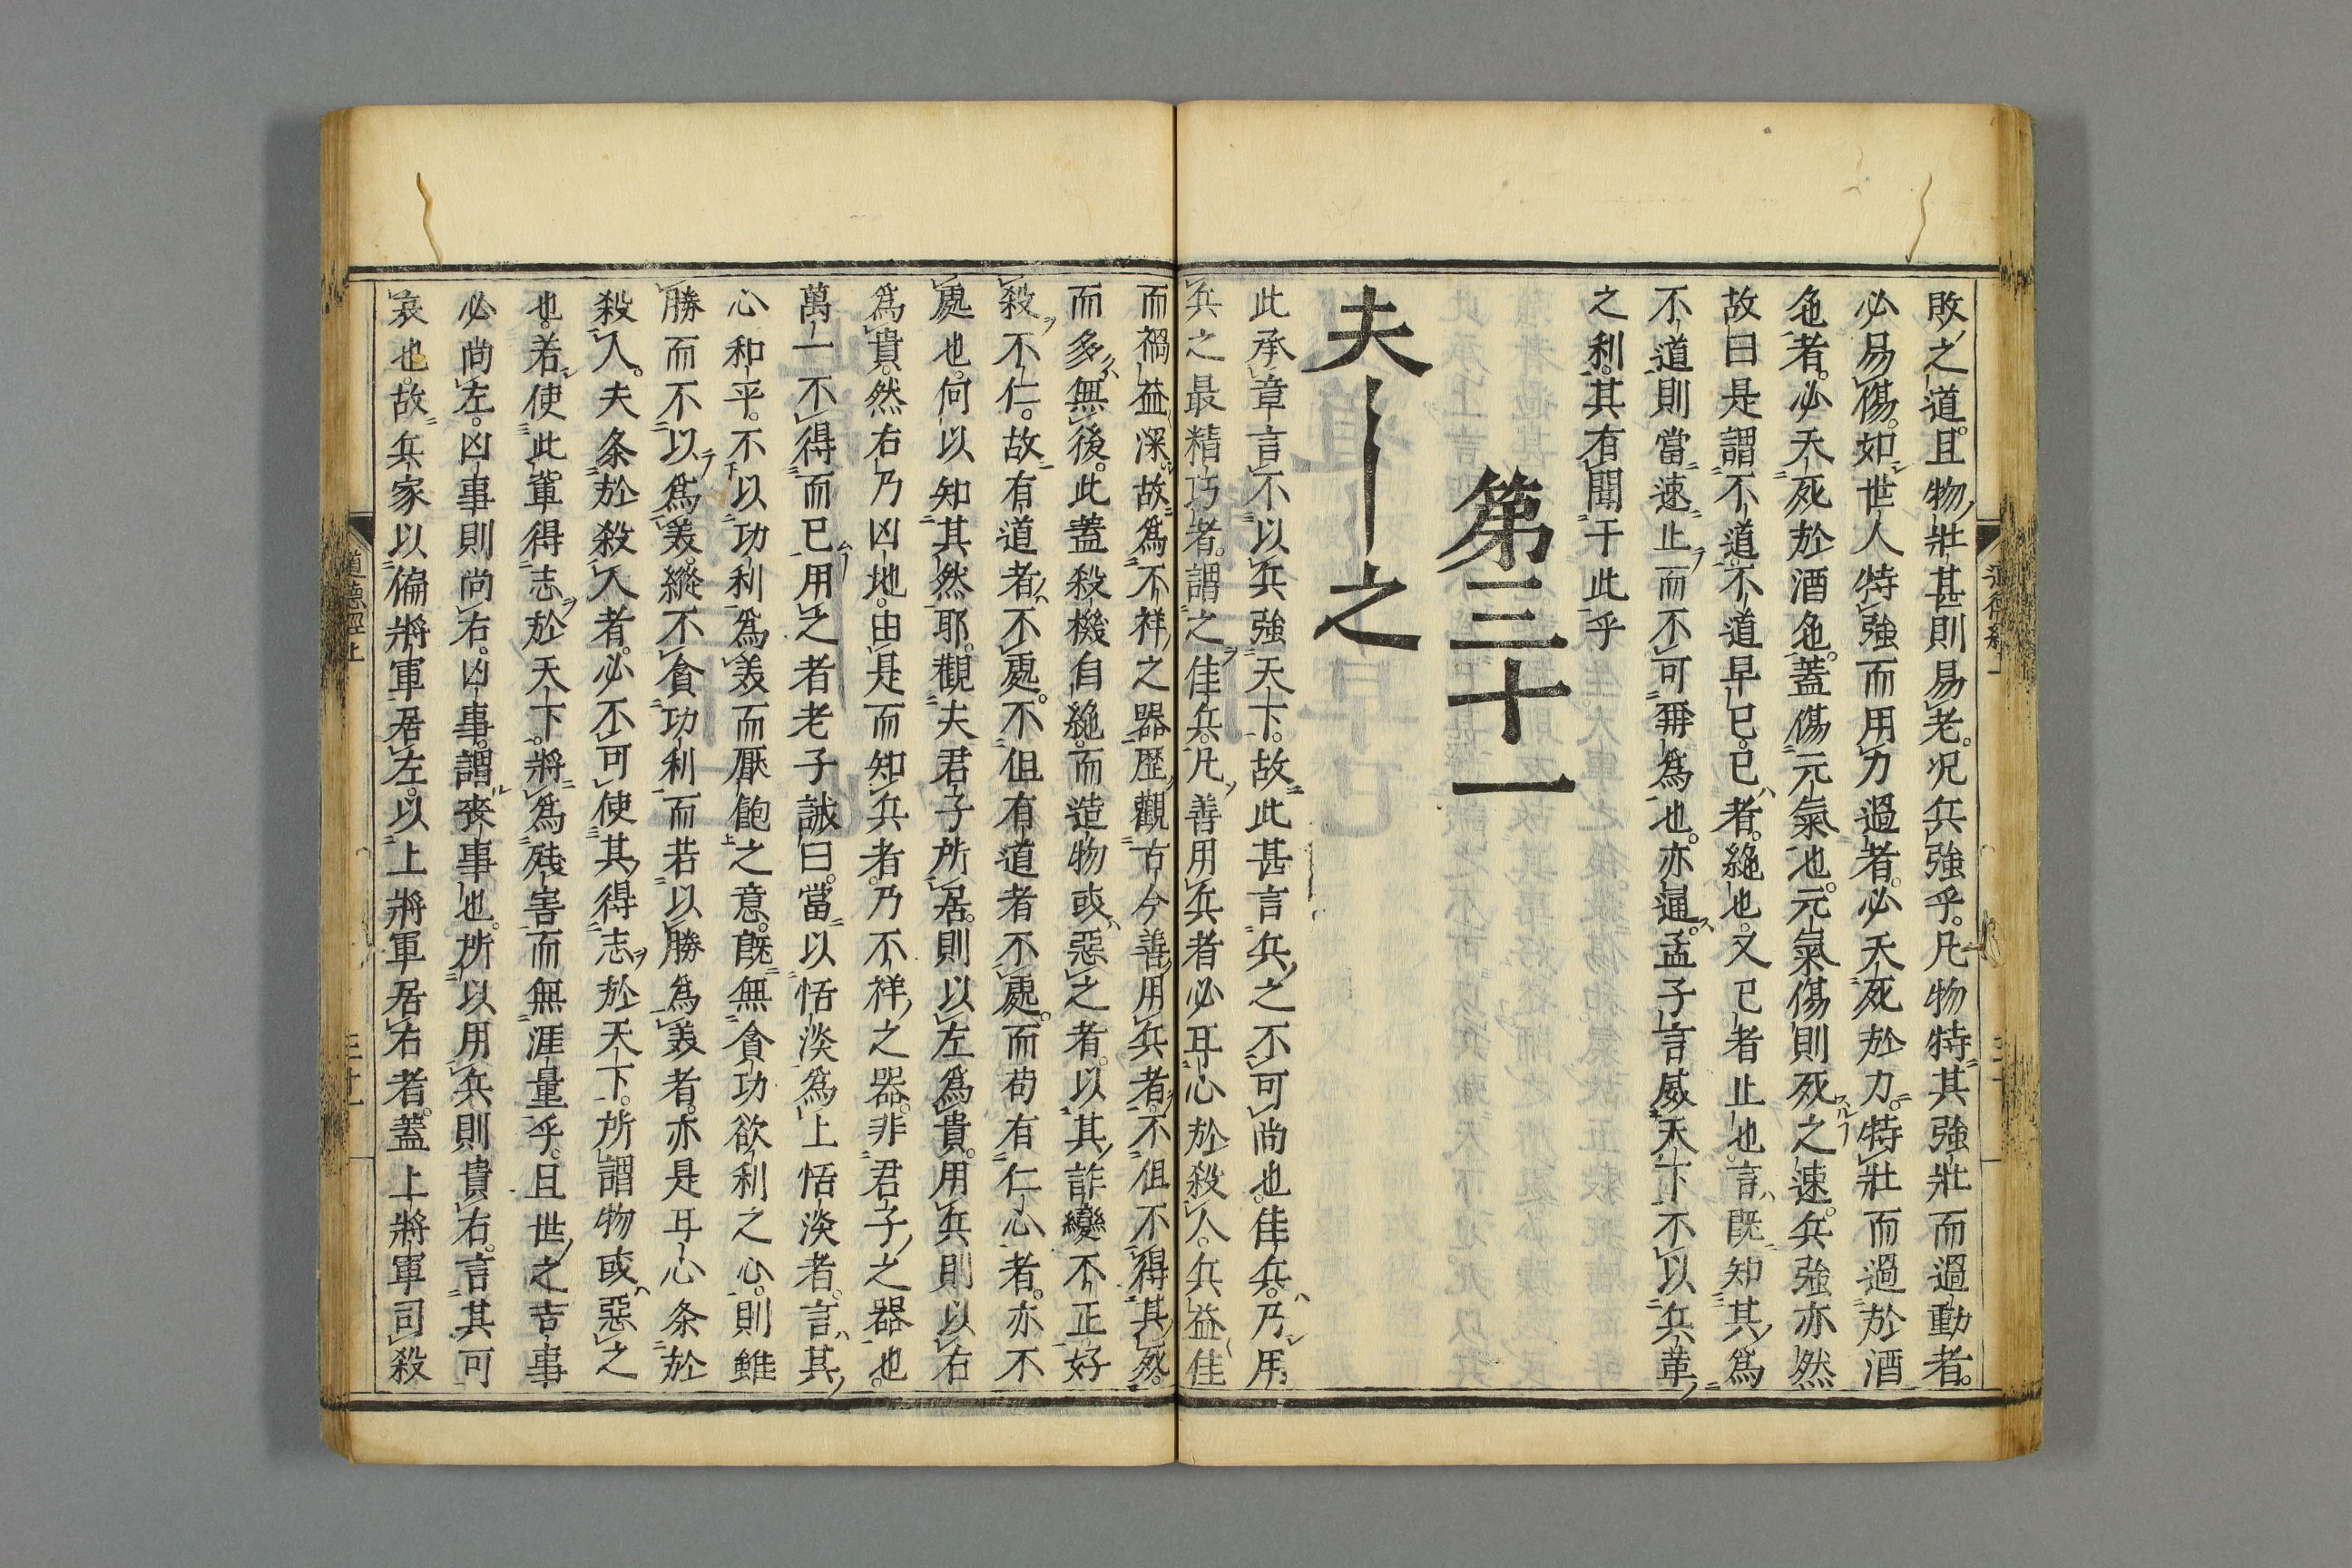 敗之道。且物壯甚則易老。况兵強乎。凡物特其強壯而過動者。
必易傷。如世人特強而用力過者。必夭死於力。特壯而過於酒
色者。必夭死於酒色。蓋傷元氣也。元氣傷則死之速。兵強亦然
故曰是謂不道。不道早已。已者。絕也。又已者止也。言既知其爲
不道則當速止而不可再爲也。亦逼孟子言威天下不以兵革
之利。其有聞于此乎
第三十一
夫――之
此承章言不以兵強天下。故此甚言兵之不可尚也。佳兵。乃用
兵之最精巧者。謂之佳兵。凡善用兵者必耳心於殺人。兵益佳
而禍益深。故爲不祥之器。歷觀古今善用兵者。不但不得其死。
而多無後。此蓋殺機自絕。而造物或惡之者。以其詐變不正。好
殺不仁。故有道者不處。不但有道者不處。而苟有仁心者。亦不
處也。何以知其然耶。觀夫君子所居。則以左爲貴。用兵則以右
爲貴。然右乃凶地。由是而知兵者。乃不祥之器。非君子之器也。
萬一不得而已用之者老子誠曰。當以恬淡爲上恬淡者。言其
心和平。不以功利爲美而厭飽之意。既無貪功欲利之心。則雖
勝而不以爲美。縱不貪功利而若以勝爲美者。亦是耳心条於
殺人。夫条於殺人者。必不可使其得志於天下。所謂物或惡之
也。若使此輩得志於天下。將爲殘害而無涯量乎。且世之吉事
必尚左。凶事則尚右。凶事。謂喪事也。所以用兵則貴右。言其可
哀也。故兵家以偏將軍居左。以上將軍居右者。蓋上將軍司殺
道德經上
三十一